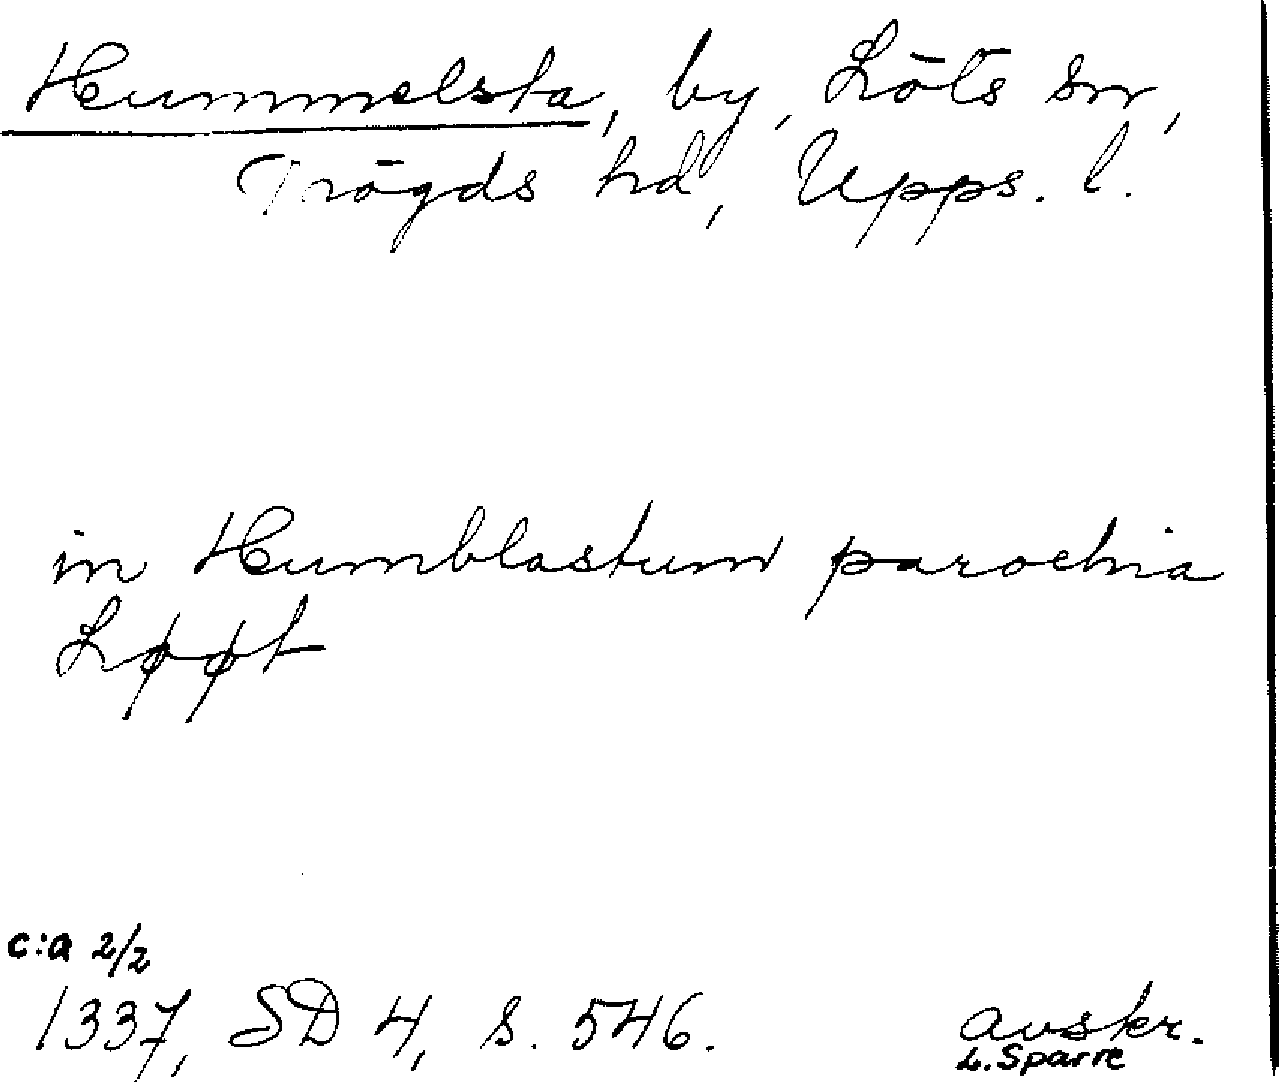 Hummelsta, by, Löts sn,
Trögds hd, Upps. l.
in Humblastum parochia
Løøt
c:a 2/2
1337, SD 4, s. 546.
avskr.
L. Sparre